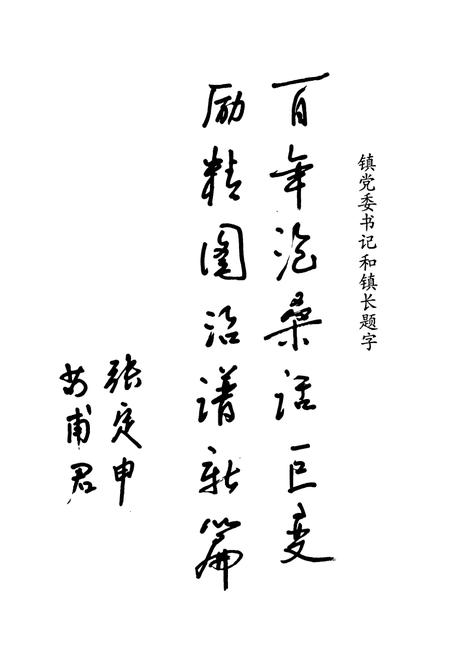 镇党委书记和镇长题字
百年沧桑话巨变
励精图治谱新篇
张定申
甫君